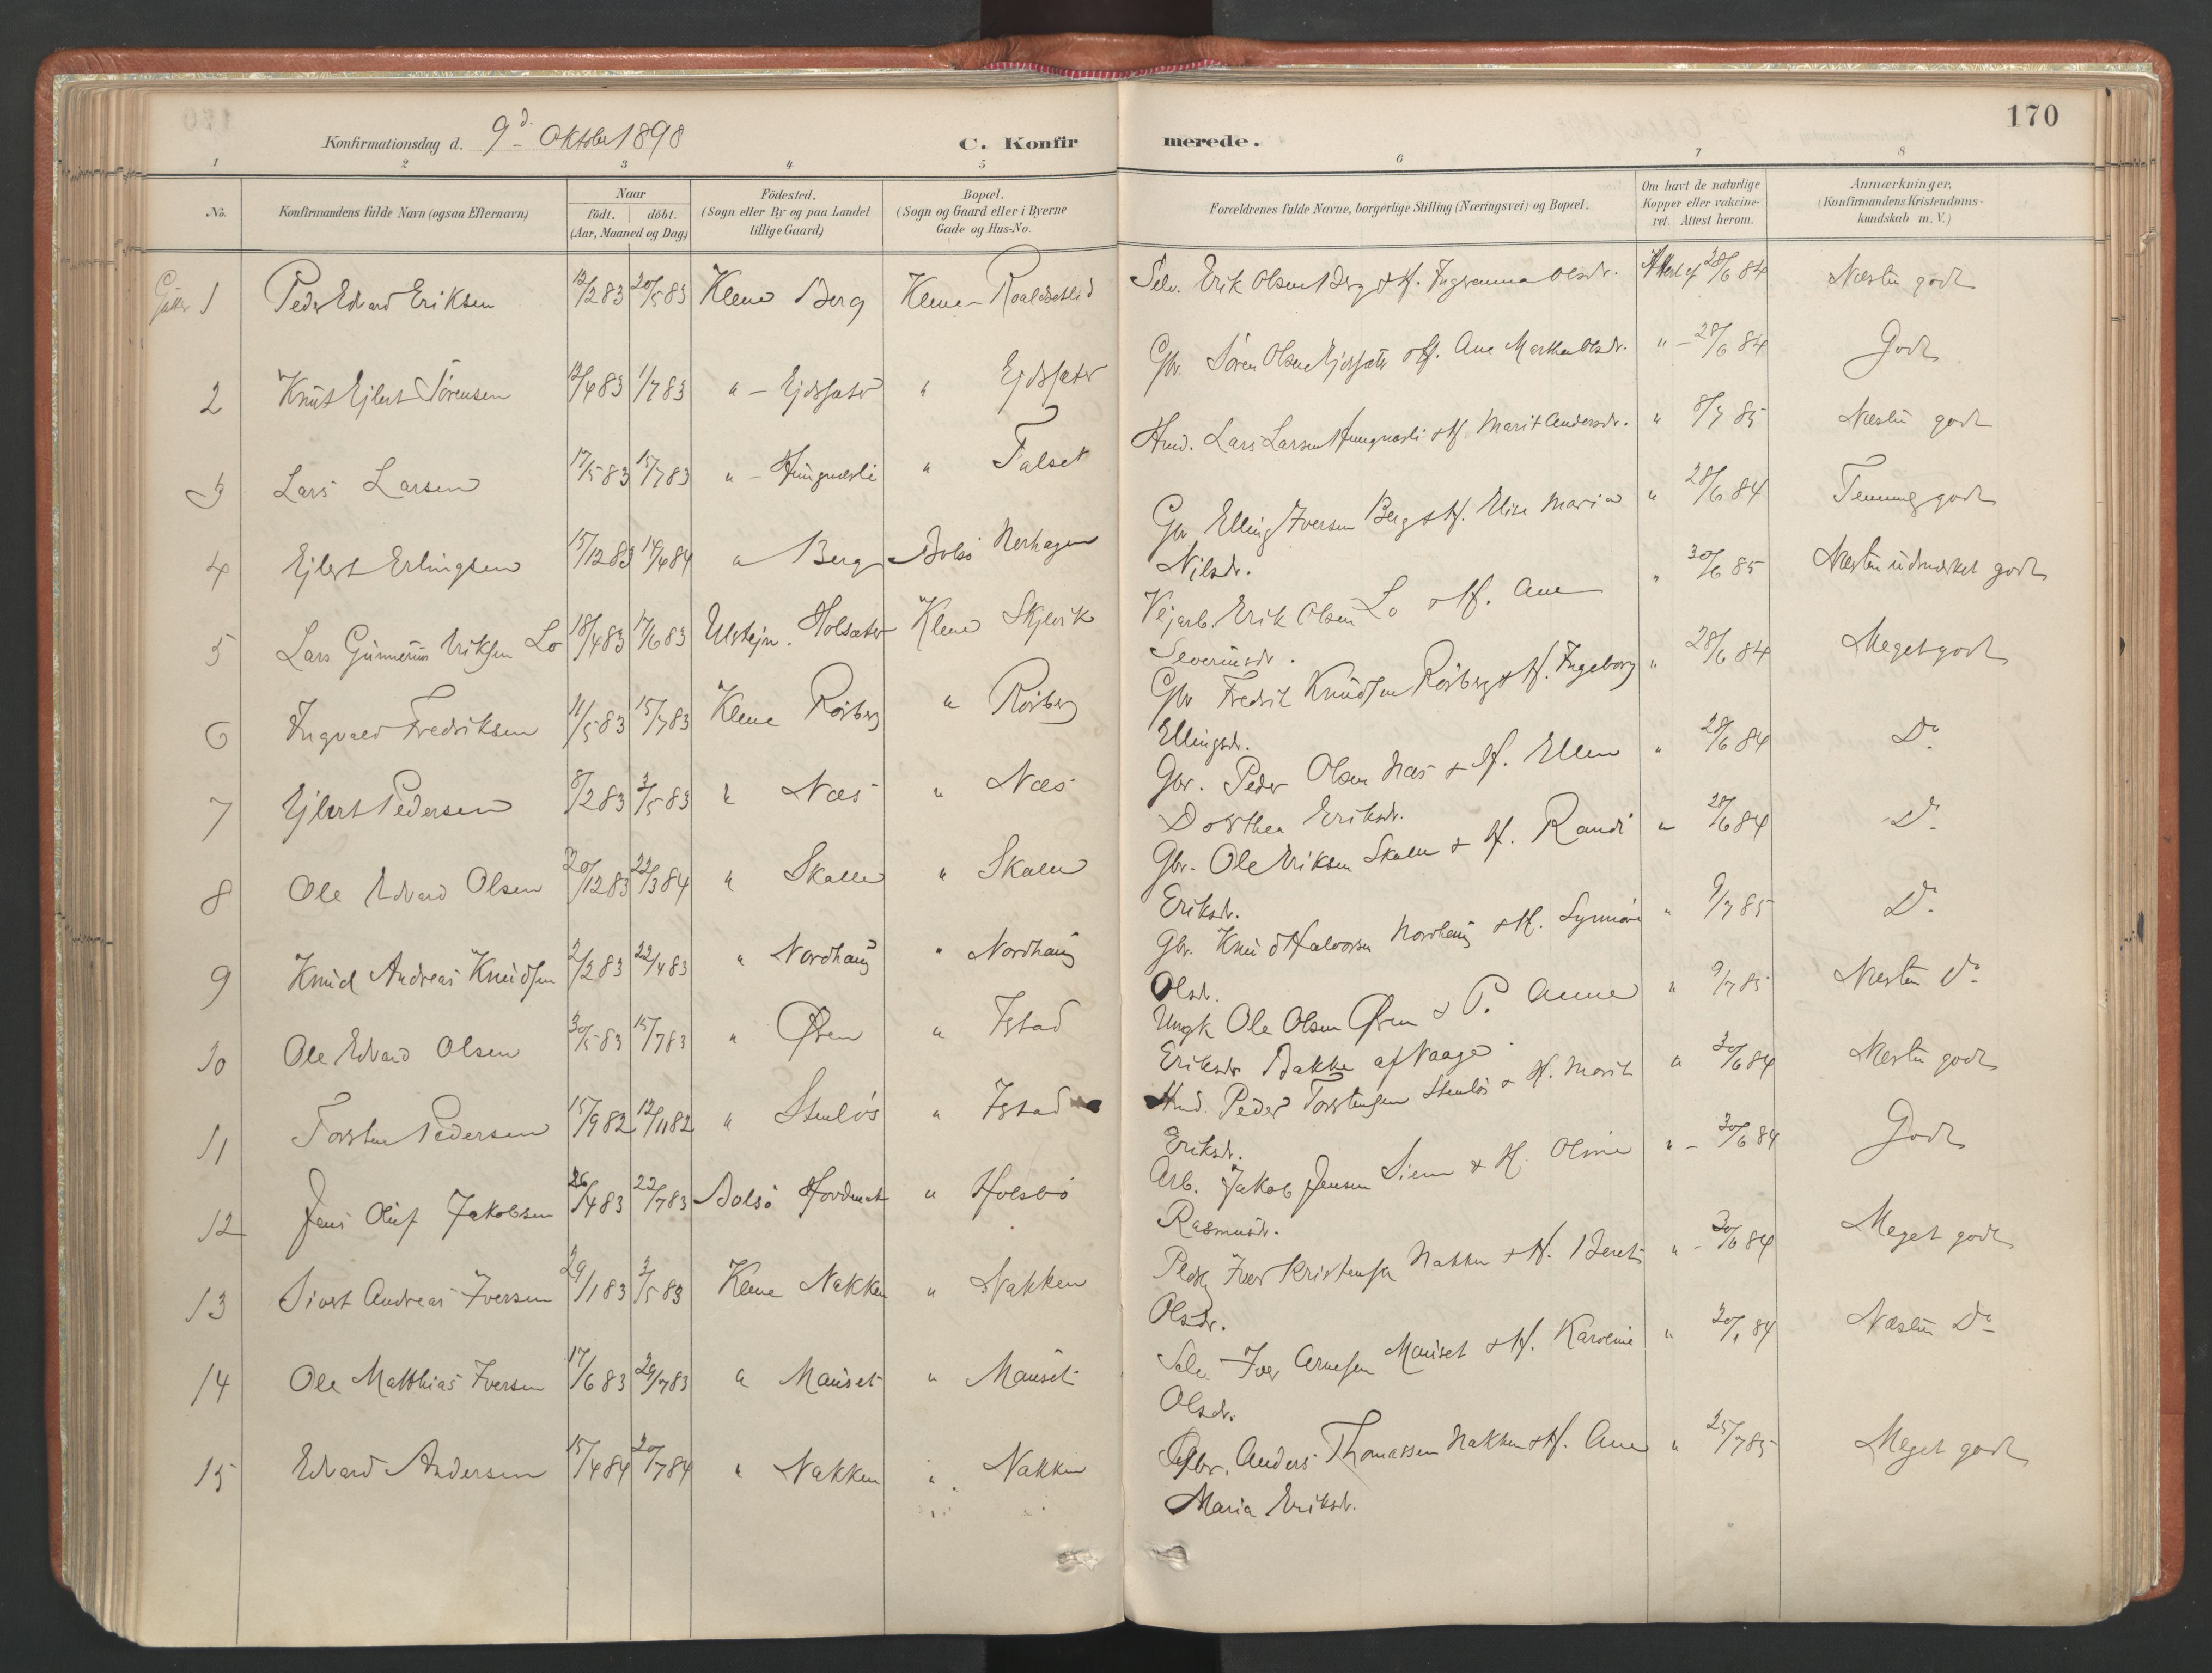 170
Konfirmationsdag d. 9d Oktober 1898
C. Konfirmerede.
1 2 3 4 5 6 7 8
No. Konfirmandens fulde Navn (ogsaa Efternavn) Naar födt. döbt. (Aar, Maaned og Dag) Födested. (Sogn eller By og paa Landet lillige Gaard) Bopæl. (Sogn og Gaard eller i Byerne Gade og Hus-No. Forældrenes fulde Navne, borgerlige Stilling (Næringsvei) og Bopæl. Om havt de naturlige Kopper eller vakcineret. Attest herom. Anmærkninger. (Konfirmandens Kristendomskundskab m. V.)
1 Peder Edvard Eriksen 12/2 83 20/5 83 Klene Berg Klene - Roaldsetlid Selv. Erik Olsen Berg & H. Ingeranna Olsdr. Attest af 28/6 84 Næsten godt
2 Knut Ejlert Sørensen 12/4 83 1/7 83 " - Ejdsæter " Ejdsæter Gbr. Søren Olsen Ejdsæter & H. Ane Marthe Olsdr. " - 28/6 84 Godt
3 Lars Larsen 17/5 83 15/7 83 " - Hungnesli " Talset Hmd. Lars Larsen Hungnesli & H. Marit Andersdr. " 8/7 85 Næsten godt
4 Ejlert Erlingsen 15/12 83 14/4 84 " Berg Bolsö Nerhagen Gbr. Elling Iversen Berg & H. Elise Maria Nilsdr. " 28/6 84 Temmelig godt
5 Lars Gunnerius Eriksen Lo 18/4 83 17/6 83 Ulstejn. Holsæter Klene Skjevik Vejarb. Erik Olsen Lo & H. Ane Severinsdr. " 30/6 85 Næsten udmærket godt
6 Ingvald Fredriksen 11/5 83 15/7 83 Klene Rösberg " Rösberg Gbr Fredrik Knudsen Rösberg & H. Ingeborg Ellingsdr. " 28/6 84 Meget godt
7 Ejlert Pedersen 8/2 83 3/5 83 " Næs " Næs Gbr. Peder Olsen Næs & H. Ellen Dorthea Eriksdr. " 28/6 84 Do
8 Ole Edvard Olsen 20/12 83 22/3 84 " Skalle " Skalle Gbr. Ole Eriksen Skalle & H. Randi Eriksdr. " 28/6 84 Do
9 Knud Andreas Knudsen 2/2 83 22/4 83 " Nordhaug " Nordhaug Gbr. Knud Halvorsen Nordhaug & H. Synnöve Olsdr. " 9/7 85 Do
10 Ole Edvard Olsen 30/5 83 15/7 83 " Øren " Istad Ungk Ole Olsen Øren & P. Anne Eriksdr Bakke af Vaage " 9/7 85 Næsten Do
11 Torsten Pedersen 15/9 82 12/11 82 " Stenlös " Istad Hmd. Peder Torstensen Stenlös & H. Marit Eriksdr. " 30/6 84 Næsten godt
12 Jens Oluf Jakobsen 26/4 83 22/7 83 Bolsö Hovdenak " Holsbö Arb. Jakob Jensen Siem & H. Oline Rasmusdr. " - 30/6 84 Godt
13 Sivert Andreas Iversen 29/1 83 3/5 83 Klene Nakken " Nakken Iver Kristensen Nakken & H. Beret Olsdr. " - 30/6 84 Meget godt
14 Ole Matthias Iversen 17/6 83 29/7 83 " Mauset " Mauset Selv. Iver Arnesen Mauset & H. Karoline Olsdr. " 84 Næsten Do
15 Edvard Andersen 15/4 84 20/7 84 " Nakken " Nakken Gbr. Anders Thomassen Nakken & H. Ane Maria Eriksdr. " 25/7 85 Meget godt